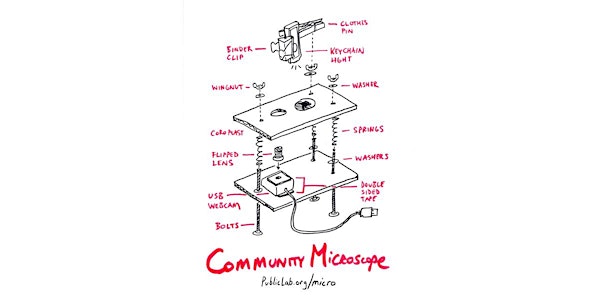 CLOTHES
PIN
BINDER
CLIP
KEYCHAIN
LIGHT
WINGNUT
WASHER
COROPLAST
SPRINGS
FLIPPED
LENS
WASHERS
USB
WEBCAM
DOUBLE
SIDED
TAPE
BOLTS
COMMUNITY MICROSCOPE
PublicLab.org/micro